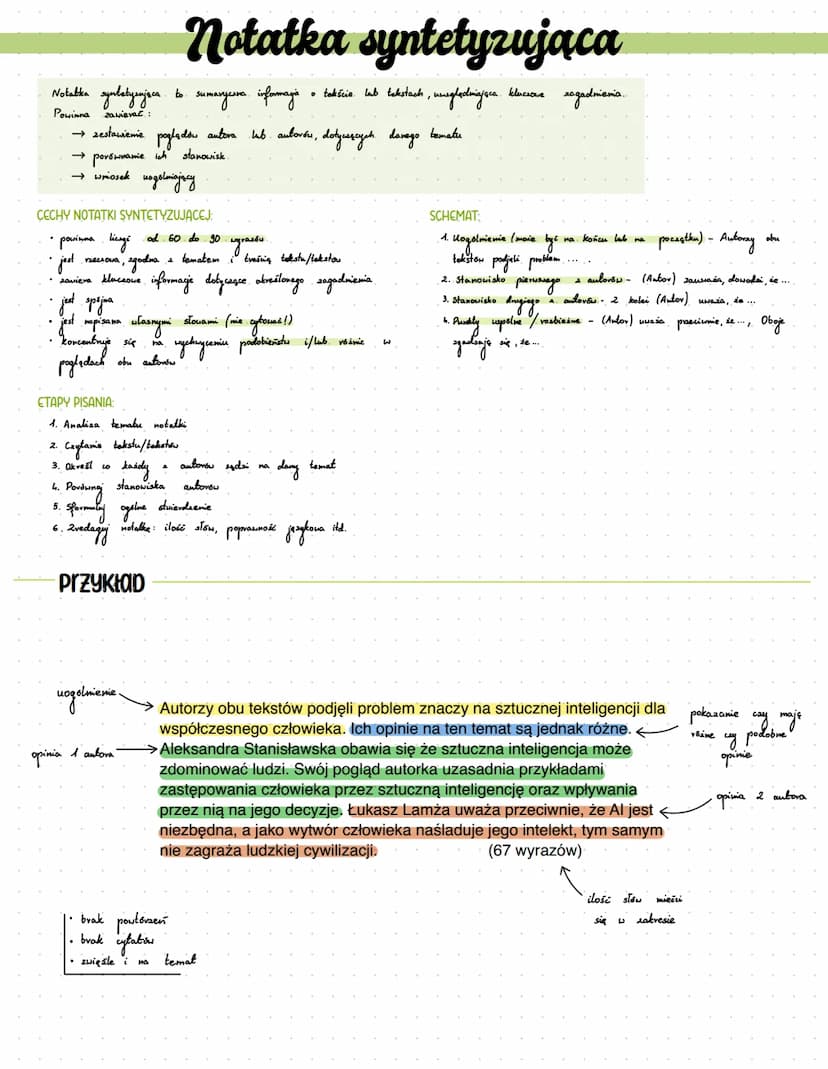 Notatka syntetyzująca
Notatka syntetyzująca to sumaryczna informacja o tekście lub tekstach, uwzględniająca kluczowe zagadnienia.
Powinna zawierać:
→ zestawienie poglądów autora lub autorów, dotyczących danego tematu
→ porównanie ich stanowisk
→ wniosek uogólniający
CECHY NOTATKI SYNTETYZUJĄCEJ:
• powinna liczyć od 60 do 90 wyrazów
• jest rzeczowa, zgodna z tematem i treścią tekstu/tekstów
• zawiera kluczowe informacje dotyczące określonego zagadnienia
• jest spójna
• jest napisana własnymi słowami (nie cytować!)
• koncentruje się na wychwyceniu podobieństw i/lub różnic w
poglądach obu autorów
SCHEMAT:
1. Uogólnienie (może być na końcu lub na początku) - Autorzy obu
tekstów podjęli problem ... .
2. Stanowisko pierwszego z autorów - (Autor) zauważa, dowodzi, że ...
3. Stanowisko drugiego z autorów - z kolei (Autor) uważa, że ...
4. Punkty wspólne / rozbieżne - (Autor) uważa przeciwnie, że ..., Oboje
zgadzają się, że ...
ETAPY PISANIA:
1. Analiza tematu notatki
2. Czytanie tekstu/tekstów
3. Określ co każdy z autorów sądzi na dany temat
4. Porównaj stanowiska autorów
5. Sformułuj ogólne stwierdzenie
6. Zredaguj notatkę: ilość słów, poprawność językowa itd.
PRZYKŁAD
uogólnienie
Autorzy obu tekstów podjęli problem znaczy na sztucznej inteligencji dla
współczesnego człowieka. Ich opinie na ten temat są jednak różne.
pokazanie czy mają
różne czy podobne
opinie
opinia 1 autora
Aleksandra Stanisławska obawia się że sztuczna inteligencja może
zdominować ludzi. Swój pogląd autorka uzasadnia przykładami
zastępowania człowieka przez sztuczną inteligencję oraz wpływania
przez nią na jego decyzje. Łukasz Lamża uważa przeciwnie, że AI jest
niezbędna, a jako wytwór człowieka naśladuje jego intelekt, tym samym
nie zagraża ludzkiej cywilizacji. (67 wyrazów)
opinia 2 autora
ilość słów mieści
się w zakresie
• brak powtórzeń
• brak cytatów
• zwięźle i na temat